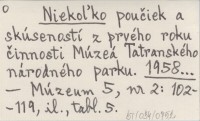 Niekoľko poučiek a
skúseností z prvého roku
činnosti Múzeá Tatranského
národného parku. 1958...
— Múzeum 5, nr 2: 102-
-119, il., tabl. 5.